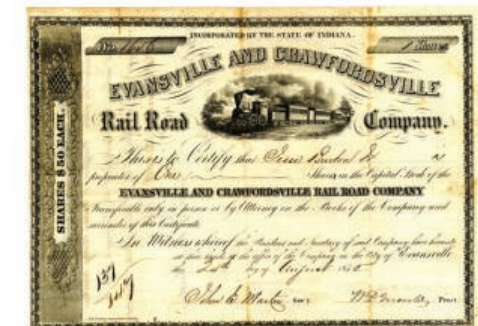 INCORPORATED BY THE STATE OF INDIANA.
No.
1 Shares
EVANSVILLE AND CRAWFORDSVILLE
Rail Road Company.
SHARES $50 EACH.
This is to Certify that
proprietor of One Shares in the Capital Stock of the
EVANSVILLE AND CRAWFORDSVILLE RAIL ROAD COMPANY
Transferable only in person or by Attorney on the Books of the Company and
surrender of this Certificate.
In Witness whereof the President and Secretary of said Company have hereunto
at the office of the Company in the City of Evansville
the 24th day of August
137
John E. Martin Sec'y.
Prest.